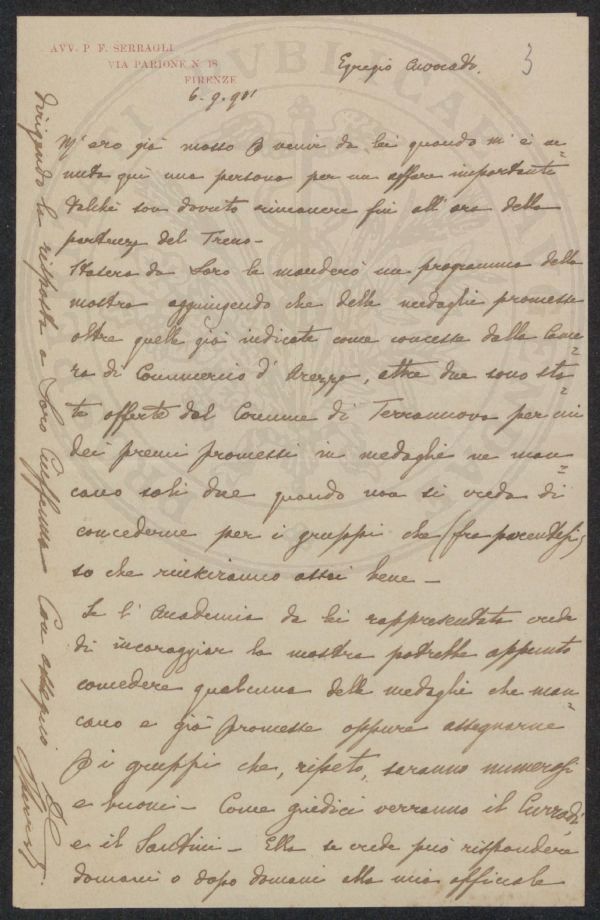 AVV. P. F. SERRAGLI
VIA PARIONE N. 18
FIRENZE
Egregio Avvocato,
3
6. 9. 901
M'ero già mosso p venir da lei quando m'è ve=
nuta qui una persona per un affare importante
talchè son dovuto rimanere fin all'ora della
partenza del Treno -
Stasera da Loro le manderò un programma della
mostra aggiungendo che delle medaglie promesse
oltre quelle già indicate come concesse dalla Came=
ra di Commercio d'Arezzo, altre due sono sta=
te offerte dal Comune di Terranuova per cui
dei premi promessi in medaglie ne man=
cano soli due quando non si creda di
concederne per i gruppi che (fra parentesi)
so che riusciranno assai bene -
Se l'Accademia da lei rappresentata crede
di incoraggiar la mostra potrebbe appunto
concedere qualcuna delle medaglie che man=
cano e già promesse oppure assegnarne
p i gruppi che, ripeto, saranno numerosi
e buoni - Come giudici verranno il Curradi
e il Santini - Ella se crede può rispondere
domani o dopo domani alla mia officiale
dirigendo la risposta a Loro Ciuffenna Con ossequio